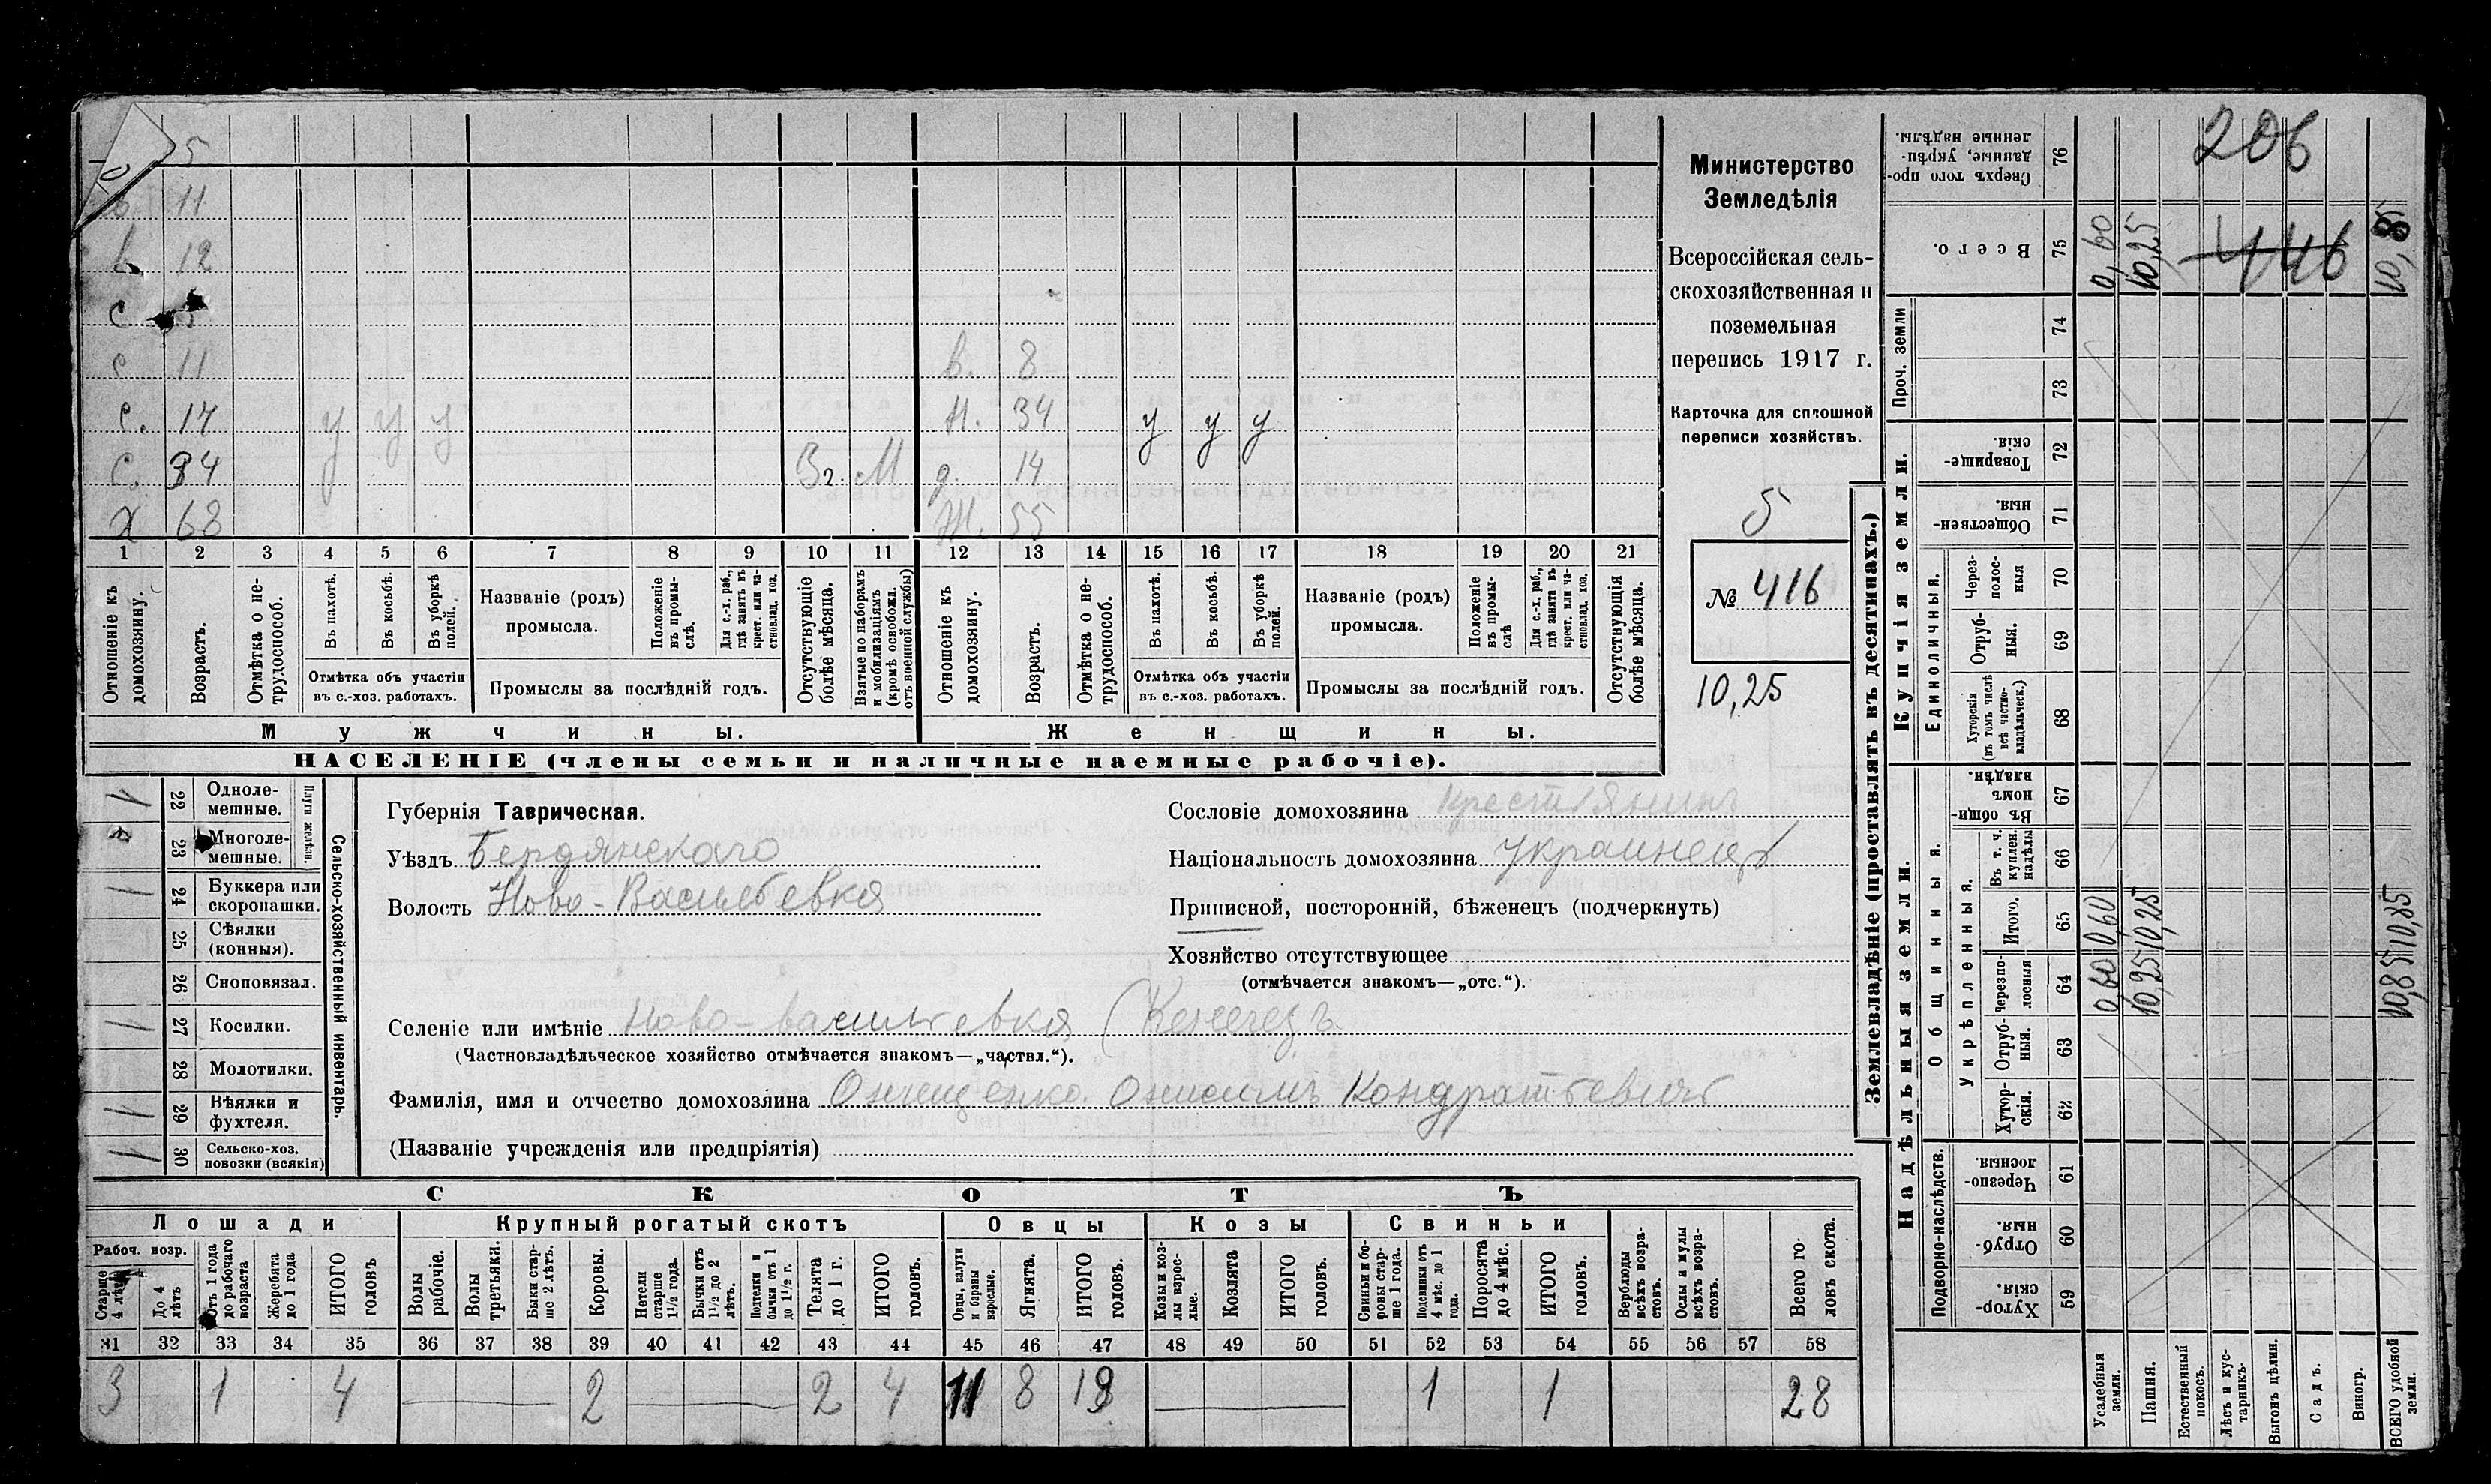 5
11
в. 12
с
с 11 в. 8
с. 17 у у у Н. 34 у у у
с. 34 3 г. М д. 14
х 68 Ж. 55
1 2 3 4 5 6 7 8 9 10 11 12 13 14 15 16 17 18 19 20 21
Отношеніе къ домохозяину.
Возрастъ.
Отмѣтка о не-трудоспособ.
Въ пахотѣ.
Въ косьбѣ.
Въ уборкѣ полей.
Отмѣтка объ участіи
въ с.-хоз. работахъ.
Названіе (родъ)
промысла.
Положеніе въ промы-слѣ.
Для с.-х. раб., гдѣ занятъ въ крест. или ча-стновлад. хоз.
Промыслы за послѣдній годъ.
Отсутствующіе болѣе мѣсяца.
Взятые по наборамъ и мобилизаціямъ (кромѣ освобожд. отъ военной службы)
Отношеніе къ домохозяину.
Возрастъ.
Отмѣтка о не-трудоспособ.
Въ пахотѣ.
Въ косьбѣ.
Въ уборкѣ полей.
Отмѣтка объ участіи
въ с.-хоз. работахъ.
Названіе (родъ)
промысла.
Положеніе въ промы-слѣ
Для с.-х. раб., гдѣ занята въ крест. или ча-стновлад. хоз.
Промыслы за послѣдній годъ.
Отсутствующія болѣе мѣсяца.
Мужчины. Женщины.
НАСЕЛЕНІЕ (члены семьи и наличные наемные рабочіе).
Министерство
Земледѣлія
Всероссійская сель-
скохозяйственная и
поземельная
перепись 1917 г.
Карточка для сплошной
переписи хозяйствъ.
5
№ 416
10,25
1 22 Одноле-мешные.
23 Многоле-мешные.
Плуги желѣзн.
1 24 Буккера или скоропашки.
25 Сѣялки (конныя).
26 Сноповязал.
1 27 Косилки.
28 Молотилки.
1 29 Вѣялки и фухтеля.
1 30 Сельско-хоз. повозки (всякія)
Сельско-хозяйственный инвентарь.
Губернія Таврическая.
Уѣздъ Бердянскаго
Волость Ново-Васильевка
Сословіе домохозяина крестьянинъ
Національность домохозяина украинецъ
Приписной, посторонній, бѣженецъ (подчеркнуть)
Хозяйство отсутствующее
(отмѣчается знакомъ—„отс.“).
Селеніе или имѣніе Ново-васильевка
(Частновладѣльческое хозяйство отмѣчается знакомъ—„частвл.“).
Фамилія, имя и отчество домохозяина Онищенко. Онисимъ Кондратьевичъ
(Названіе учрежденія или предпріятія)
СКОТЪ
Лошади Крупный рогатый скотъ Овцы Козы Свиньи
Рабоч. возр.
Старше 4 лѣтъ
До 4 лѣтъ
Отъ 1 года до рабочаго возраста
Жеребята до 1 года
ИТОГО головъ
Волы рабочіе.
Волы третьяки.
Быки стар-ше 2 лѣтъ.
Коровы.
Нетели старше 1½ года.
Бычки отъ 1½ до 2 лѣтъ.
Подтелки и бычки отъ 1 до 1½ г.
Телята до 1 г.
ИТОГО головъ.
Овцы, валухи и бараны взрослые.
Ягнята.
ИТОГО головъ.
Козы и коз-лы взрос-лые.
Козлята
ИТОГО головъ.
Свиньи и бо-ровы стар-ше 1 года.
Подсвинки отъ 4 мѣс. до 1 года.
Поросята до 4 мѣс.
ИТОГО головъ.
Верблюды всѣхъ возра-стовъ.
Ослы и мулы всѣхъ возра-стовъ.
Всего го-ловъ скота.
31 32 33 34 35 36 37 38 39 40 41 42 43 44 45 46 47 48 49 50 51 52 53 54 55 56 57 58
3 1 4 2 2 4 11 8 19 1 1 28
Землевладѣніе (проставлять въ десятинахъ.)
Купчія земли.
Надѣльныя земли.
206
446
Сверхъ того про-данные, укрѣп-ленные надѣлы. 76
Всего. 75 0,60 10,25 10,85
Проч. земли 74
73
Товарище-скія. 72
Обществен-ныя. 71
Единоличныя.
Через-полос-ныя 70
Отруб-ныя. 69
Хуторскія (въ томъ числѣ всѣ частно-владѣльческ.) 68
Общинныя.
Въ общи-номъ владѣн. 67
Укрѣпленныя.
Въ т. ч. куплен. надѣлы 66
Итого. 65 0,60 10,25 10,85
Черезпо-лосныя 64 0,60 10,25 10,85
Отруб-ныя. 63
Хутор-скія. 62
Подворно-наслѣдств.
Черезпо-лосныя. 61
Отруб-ныя. 60
Хутор-скія. 59
Усадебныя земли.
Пашня.
Естественный покосъ.
Лѣсъ и кус-тарникъ.
Выгонъ цѣлин.
Садъ.
Виногр.
ВСЕГО удобной земли.